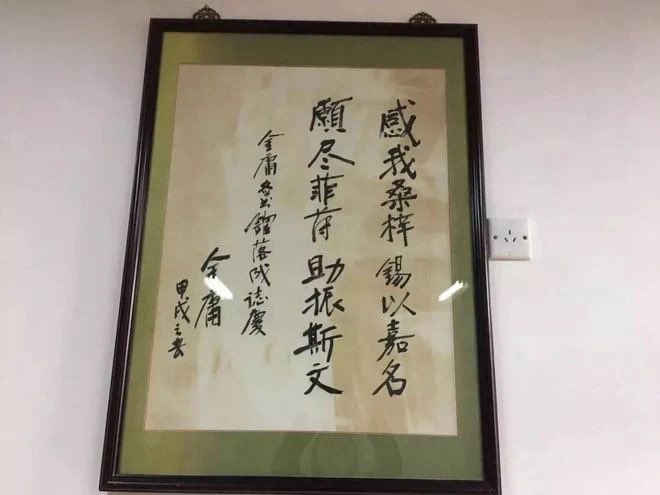 感我桑梓 錫以嘉名
願尽菲荷 助振斯文
金庸圖書館落成誌慶
金庸
甲戌之春